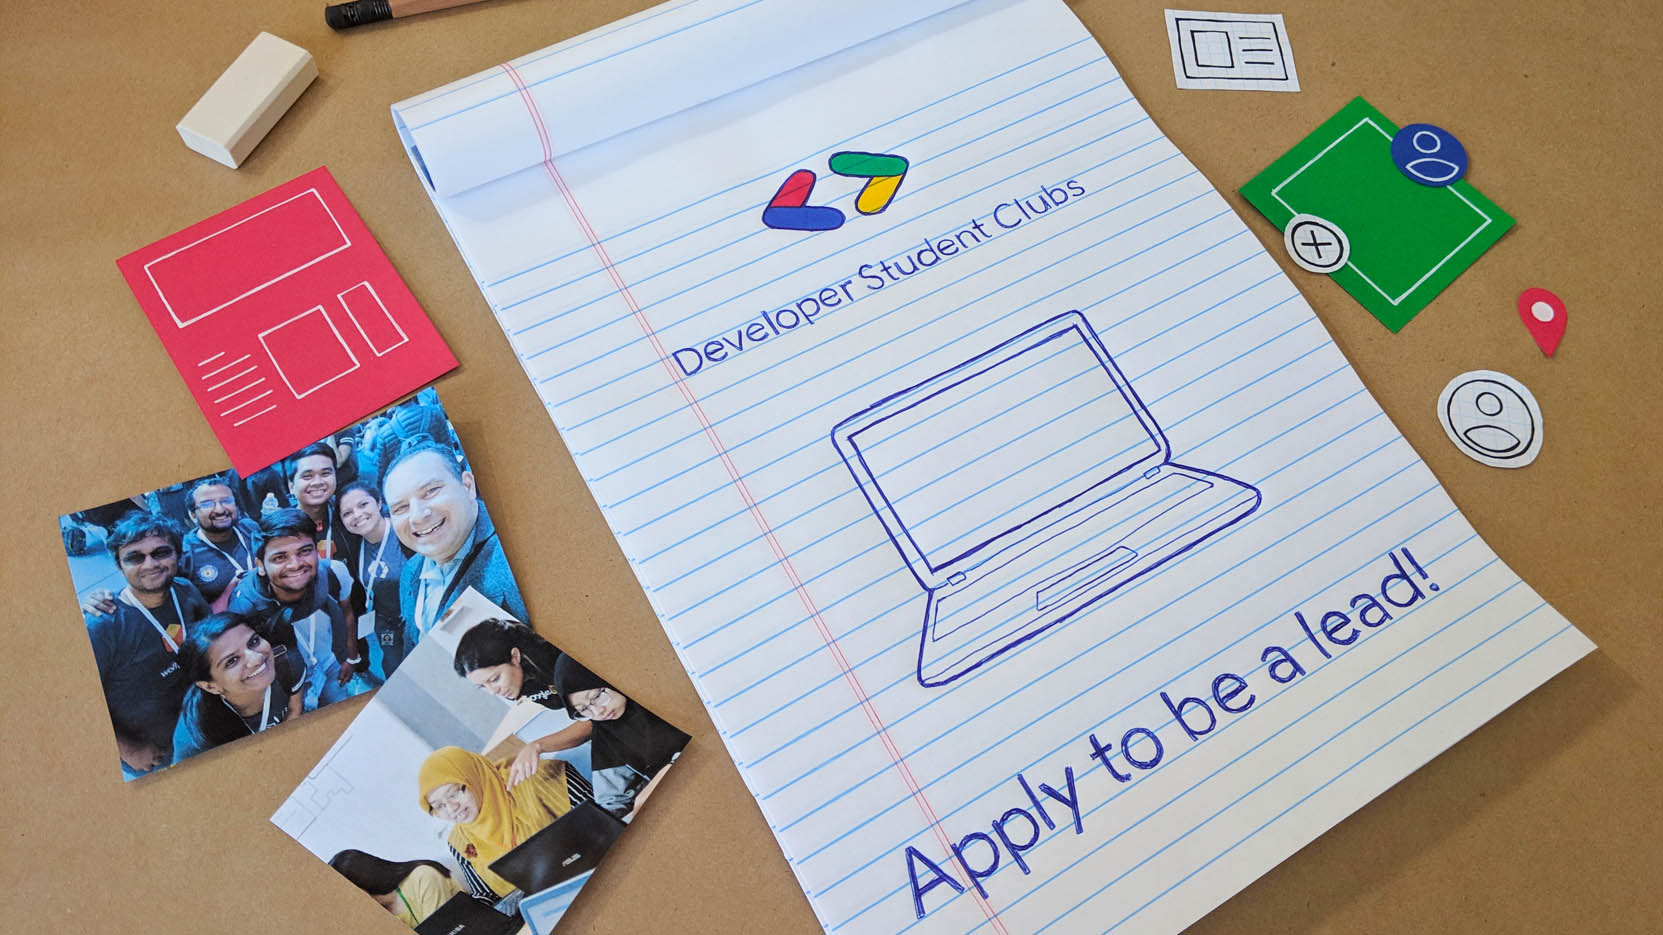 Developer Student Clubs
Apply to be a lead!
ASUS